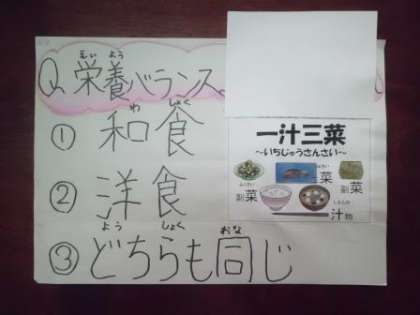 Q. 栄養バランス
えいよう
① 和食
わしょく
② 洋食
ようしょく
③ どちらも同じ
おな
一汁三菜
～いちじゅうさんさい～
副菜
菜
副菜
汁物